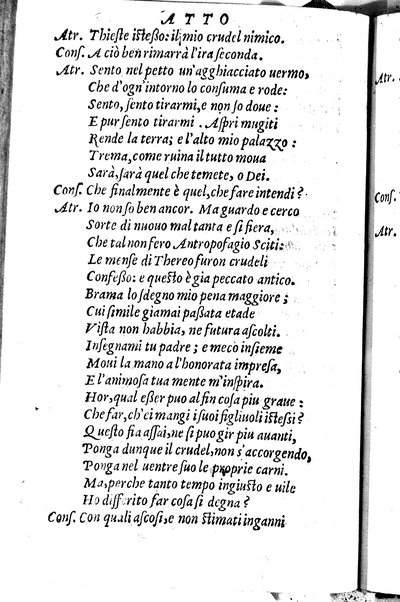 ATTO
Atr. Thieste isteßo: il mio crudel nimico.
Conf. A ciò ben rimarrà l'ira seconda.
Atr. Sento nel petto un'agghiacciato uermo,
Che d'ogn'intorno lo consuma e rode:
Sento, sento tirarmi, e non so doue:
E pur sento tirarmi. Aspri mugiti
Rende la terra; e l'alto mio palazzo:
Trema, come ruina il tutto moua
Sarà, sarà quel che temete, o Dei.
Conf. Che finalmente è quel, che fare intendi?
Atr. Io non so ben ancor. Ma guardo e cerco
Sorte di nuouo mal tanta e si fiera,
Che tal non fero Antropofagio Sciti:
Le mense di Thereo furon crudeli
Confeßo: e questo è gia peccato antico.
Brama lo sdegno mio pena maggiore;
Cui simile giamai paßata etade
Vista non habbia, ne futura ascolti.
Insegnami tu padre; e meco insieme
Moui la mano a l'honorata impresa,
E l'animosa tua mente m'inspira.
Hor, qual eßer puo al fin cosa piu graue:
Che far, ch'ci mangi i suoi figliuoli istessi?
Questo fia assai, ne si puo gir piu auanti,
Ponga dunque il crudel, non s'accorgendo,
Ponga nel uentre suo le proprie carni.
Ma, perche tanto tempo ingiusto e uile
Ho differito far cosa si degna?
Conf. Con quali ascosi, e non stimati inganni
Atr.
Conf.
Atr.